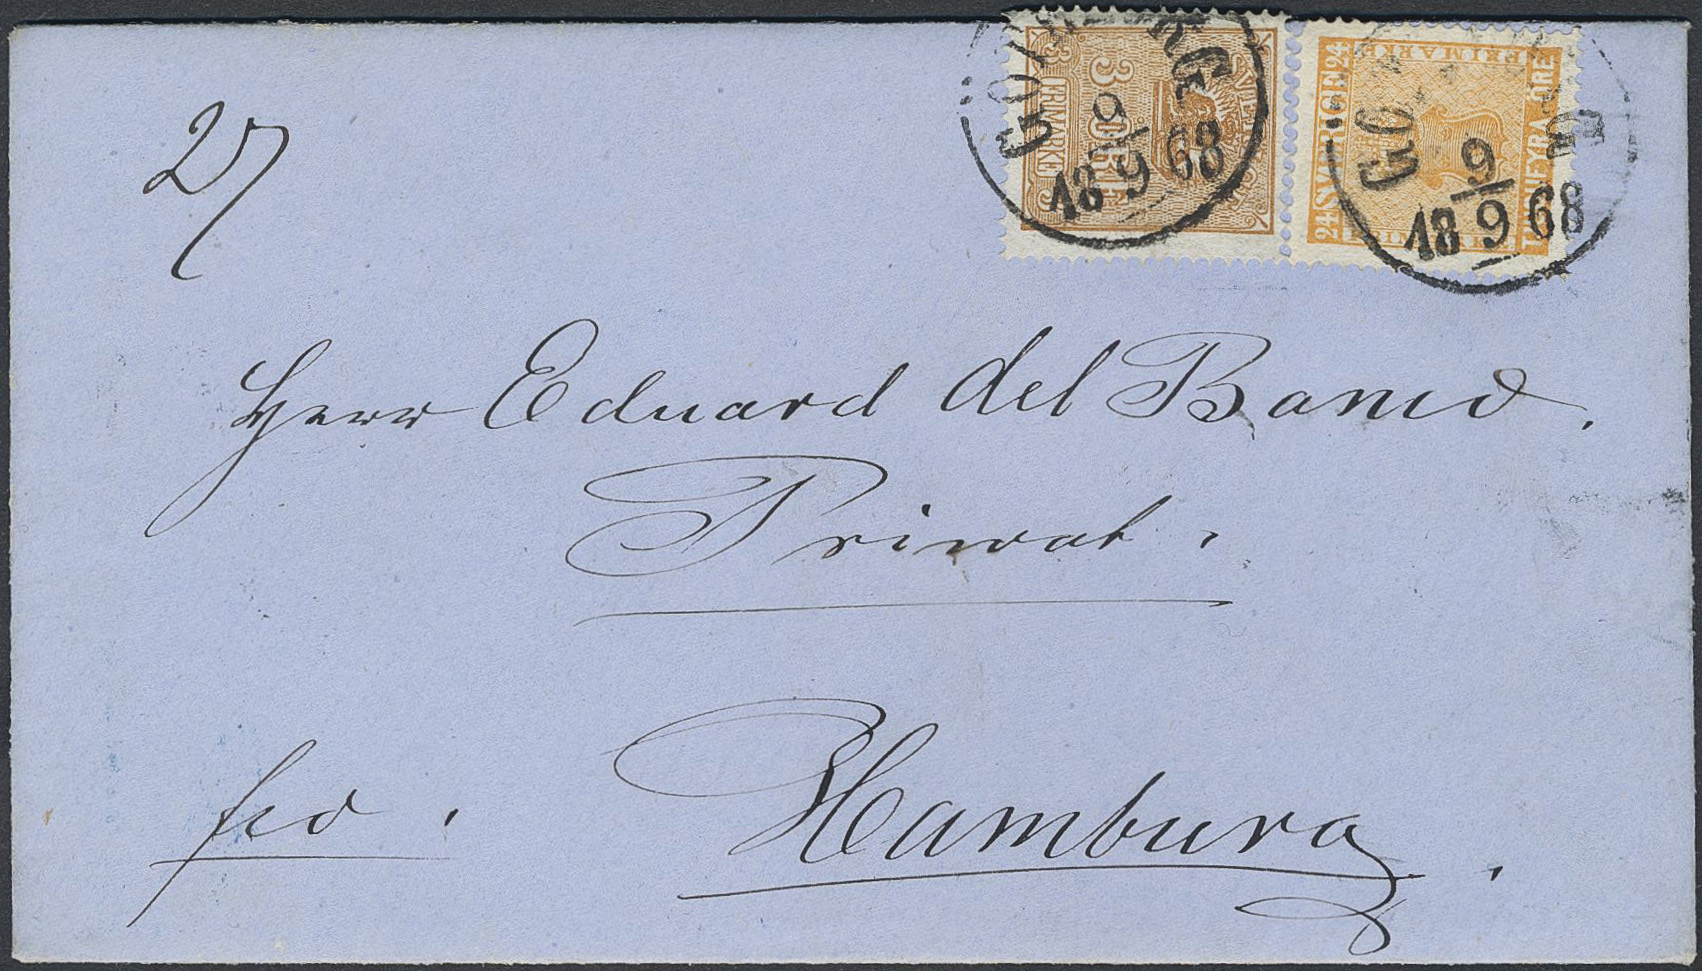 GÖTEBORG
9
18 9 68
3 ÖRE
FRIMÄRKE
SVERIGE
GÖTEBORG
9
18 9 68
24 SVERIGE 24
FRIMÄRKE
TJUGUFYRA ÖRE
27
Herr Eduard del Banco.
Priwat.
fco.
Hamburg.